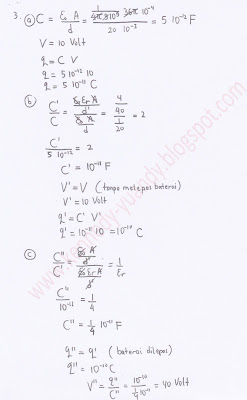 3. (a) C = ε₀ A / d = (1/(4π 9·10⁹) 36π 10⁻⁴) / (20 10⁻³) = 5 10⁻¹² F
V = 10 Volt
q = C V
q = 5 10⁻¹² 10
q = 5 10⁻¹¹ C
(b) C'/C = (ε₀ εr A / d') / (ε₀ A / d) = (4/40) / (1/20) = 2
C' / 5 10⁻¹² = 2
C' = 10⁻¹¹ F
V' = V (tanpa melepas baterai)
V' = 10 Volt
q' = C' V'
q' = 10⁻¹¹ 10 = 10⁻¹⁰ C
(c) C''/C' = (ε₀ A / d') / (ε₀ εr A / d') = 1/εr
C'' / 10⁻¹¹ = 1/4
C'' = 1/4 10⁻¹¹ F
q'' = q' (baterai dilepas)
q'' = 10⁻¹⁰ C
V'' = q''/C'' = 10⁻¹⁰ / (1/4 10⁻¹¹) = 40 Volt